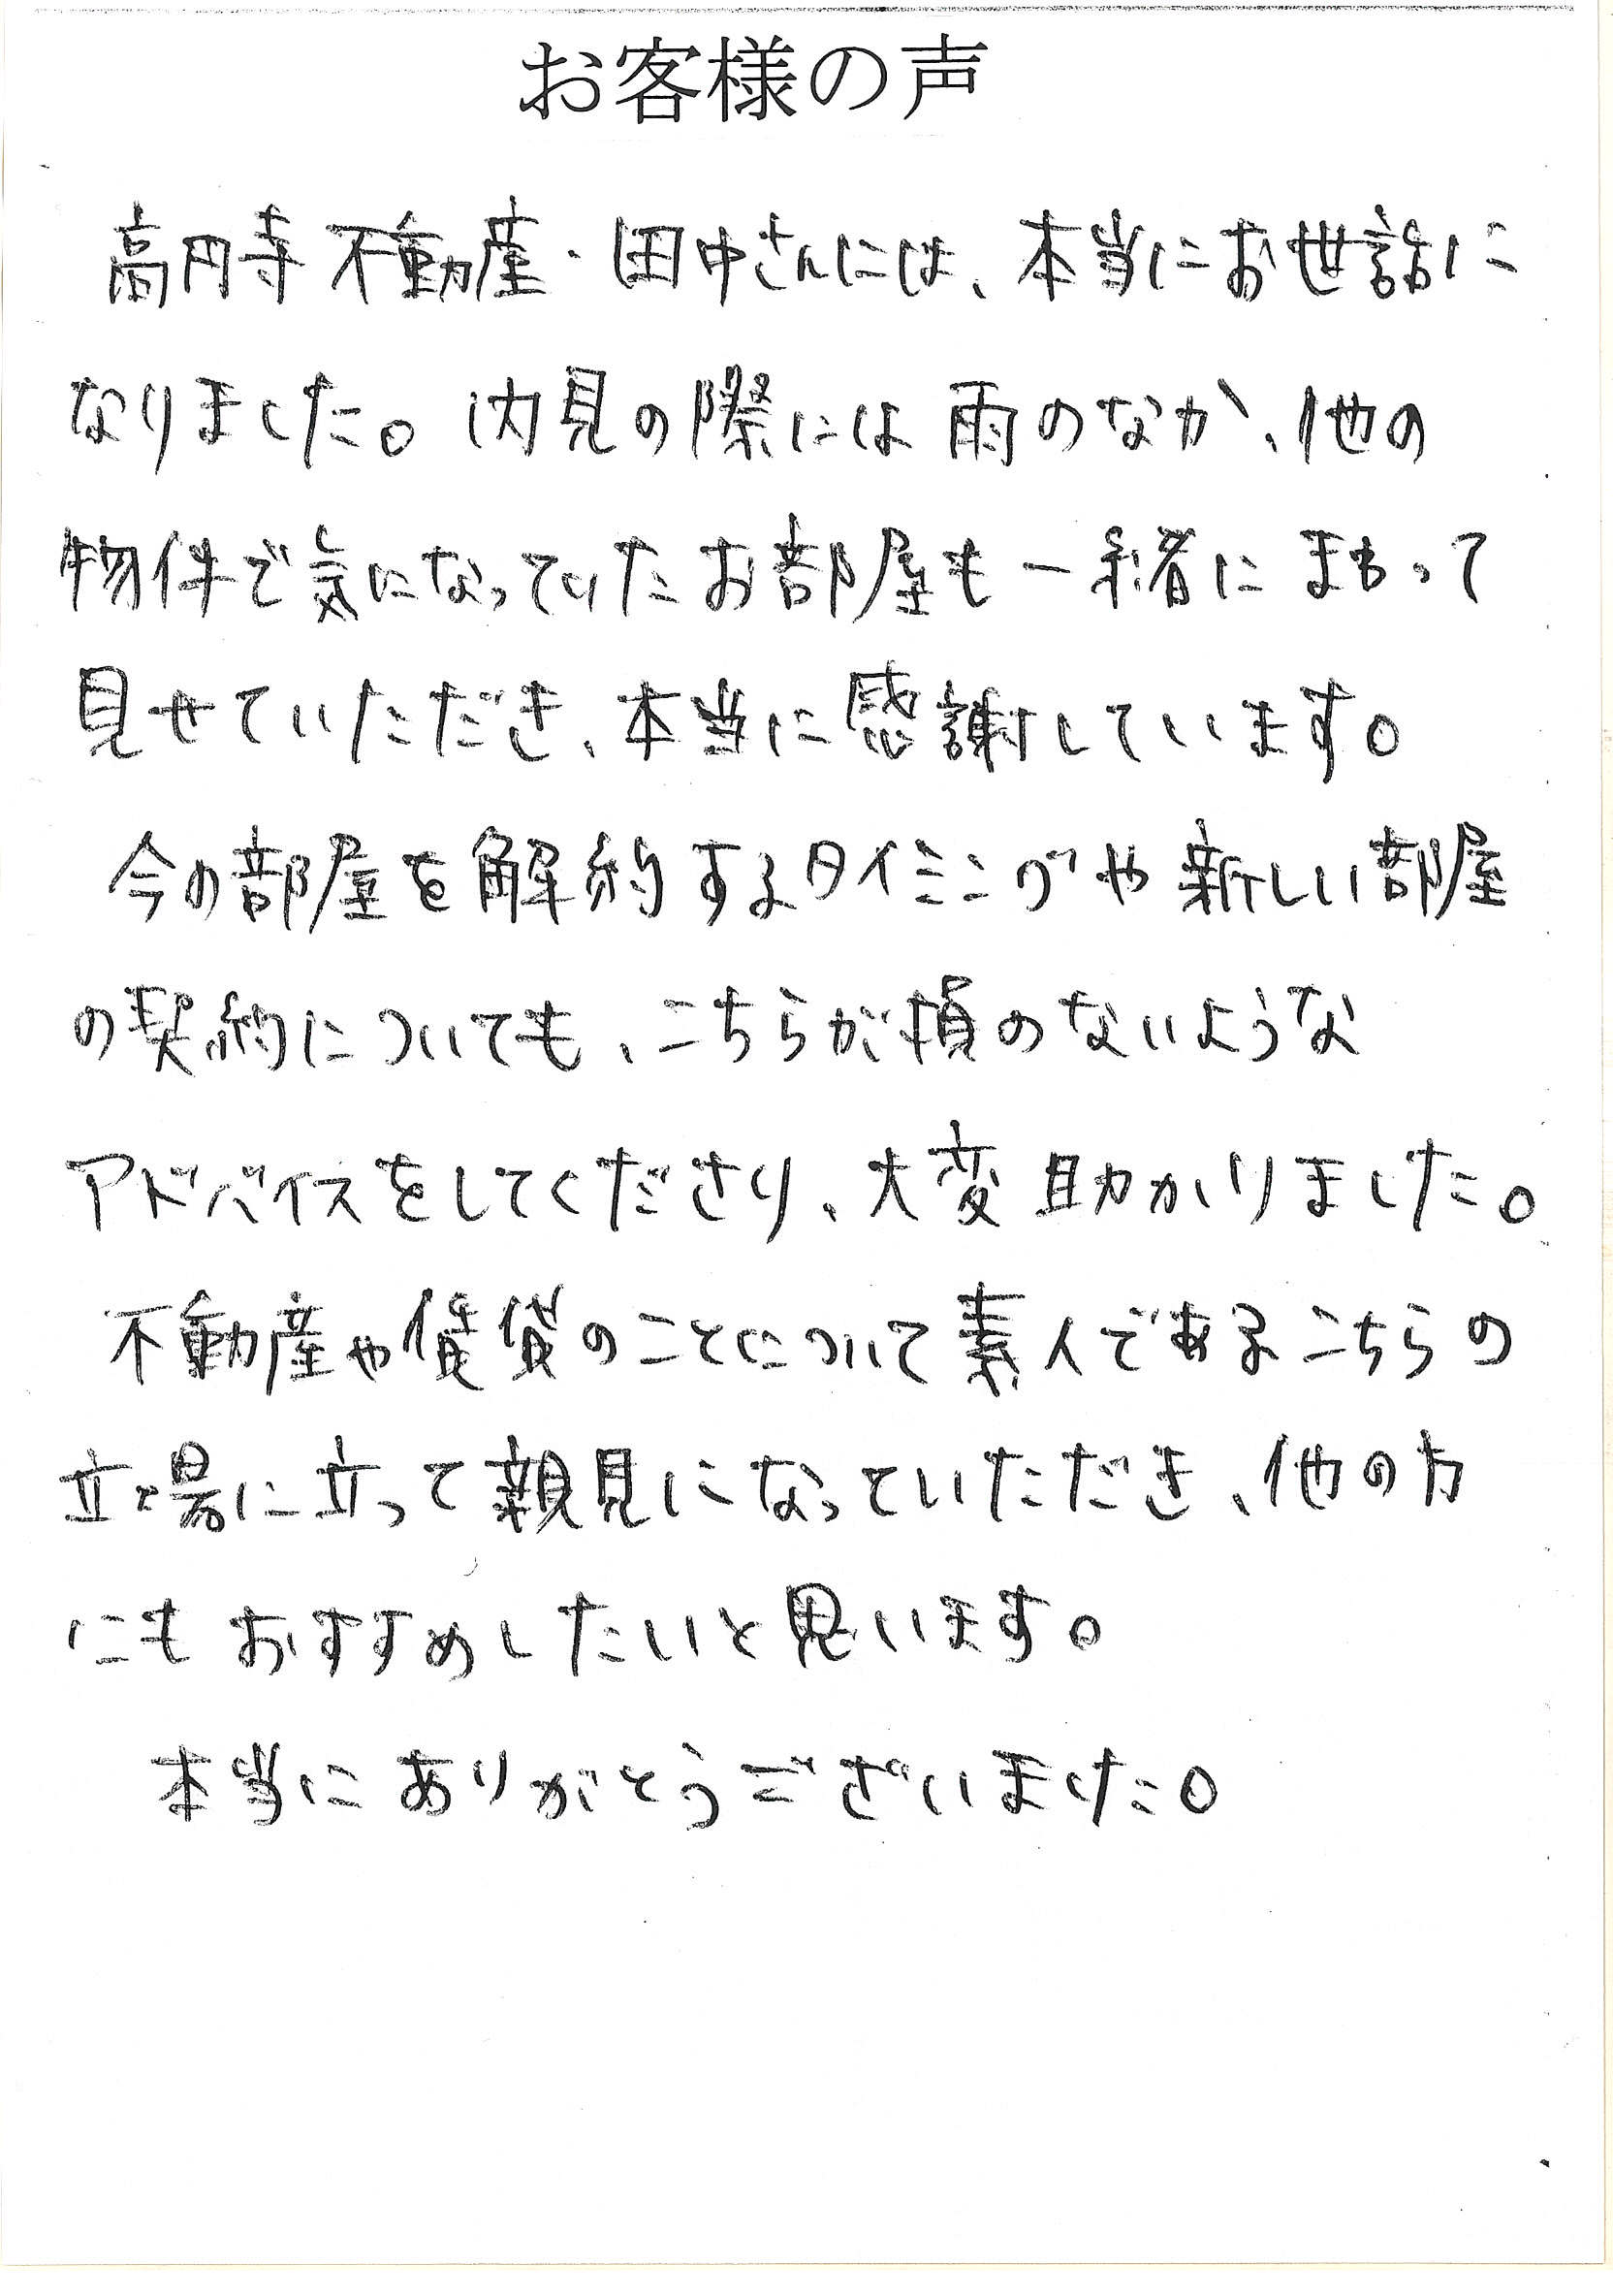 お客様の声
高円寺不動産・田中さんには、本当にお世話に
なりました。内見の際には雨のなか、他の
物件で気になっていたお部屋も一緒にまわって
見せていただき、本当に感謝しています。
今の部屋を解約するタイミングや新しい部屋
の契約についても、こちらが損のないような
アドバイスをしてくださり、大変助かりました。
不動産や賃貸のことについて素人であるこちらの
立場に立って親見になっていただき、他の方
にもおすすめしたいと思います。
本当にありがとうございました。